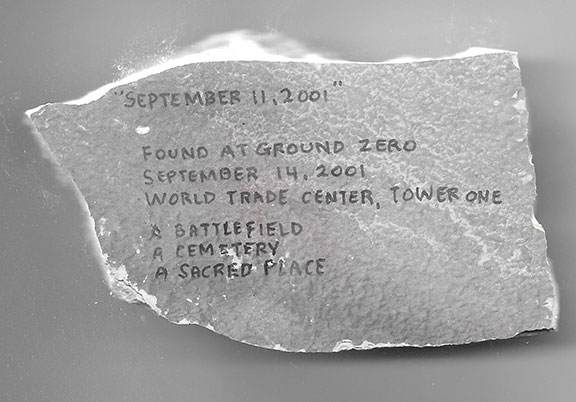 "SEPTEMBER 11, 2001"
FOUND AT GROUND ZERO
SEPTEMBER 14, 2001
WORLD TRADE CENTER, TOWER ONE
A BATTLEFIELD
A CEMETERY
A SACRED PLACE